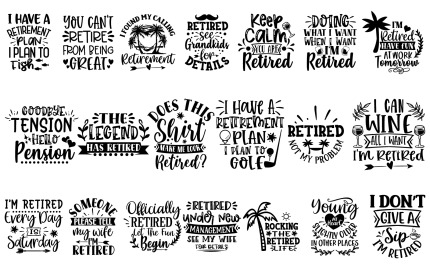 I HAVE A
RETIREMENT
PLAN
I PLAN TO
Fish
YOU CAN'T
RETIRE
FROM BEING
GREAT
I FOUND MY CALLING
Retirement
RETIRED
see
Grandkids
for
DETAILS
Keep
CALM
YOU ARE
Retired
DOING
WHAT I WANT
WHEN I WANT
I'm
Retired
I'M
Retired
HAVE FUN
AT WORK
Tomorrow
GOODBYE
TENSION
HELLO
Pension
THE
LEGEND
HAS RETIRED
DOES THIS
Shirt
MAKE ME LOOK
Retired?
I HAVE A
RETIREMENT
PLAN
I PLAN TO
GOLF
RETIRED
NOT MY PROBLEM
I CAN
WINE
ALL I WANT
I'M RETIRED
I'M RETIRED
Every Day
IS
Saturday
SOMEONE
PLEASE TELL
my wife
I'M
RETIRED
Officially
RETIRED
Let The Fun
Begin
RETIRED
under New
MANAGEMENT
SEE MY WIFE
FOR DETAILS
ROCKING
THE
RETIRED
LIFE
Young
AT
SLIGHTLY OLDER
IN OTHER PLACES
I DON'T
GIVE A
Sip
I'M RETIRED